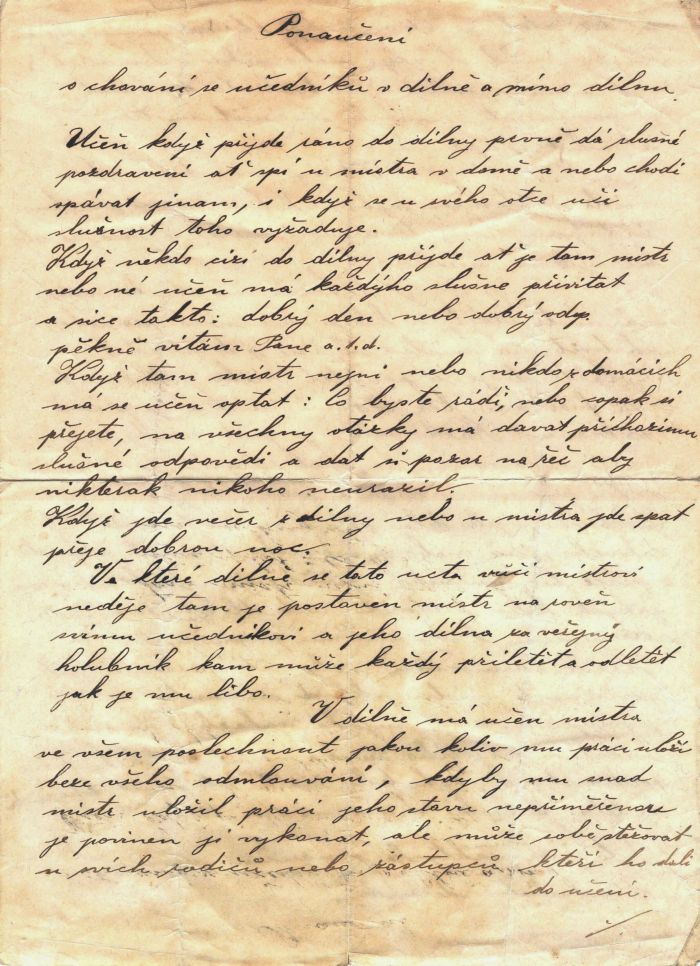 Ponaučení
o chování se učedníků v dílně a mimo dílnu.
Učeň když příjde ráno do dílny prvně dá slušné
pozdravení ať spí u mistra v domě a nebo chodí
spávat jinam, i když se u svého otce učí
slušnost toho vyžaduje.
Když někdo cizí do dílny příjde ať je tam mistr
nebo né učeň má každýho slušně přivítat
a sice takto: dobrý den nebo dobrý odp.
pěkně vítám Pane a.t.d.
Když tam mistr nejni nebo nikdo z domácích
má se učeň optat: Co byste rádi, nebo copak si
přejete, na všechny otázky má davat příchozímu
slušné odpovědi a dat si pozor na řeč aby
nikterak nikoho neurazil.
Když jde večer z dílny nebo u mistra jde spat
přeje dobrou noc.
Ve které dílně se tato ucta vůči mistrovi
neděje tam je postaven mistr na roveň
svimu učedníkovi a jeho dílna za veřejný
holubník kam může každý přiletět a odletět
jak je mu libo.
V dílně má učen mistra
ve všem poslechnout jakou koliv mu práci uloží
beze všeho odmlouvání, kdyby mu snad
mistr uložil práci jeho stavu nepřiměřenou
je povinen ji vykonat, ale může sobě stěžovat
u svích rodičů nebo zástupců, kteří ho dali
do učení.